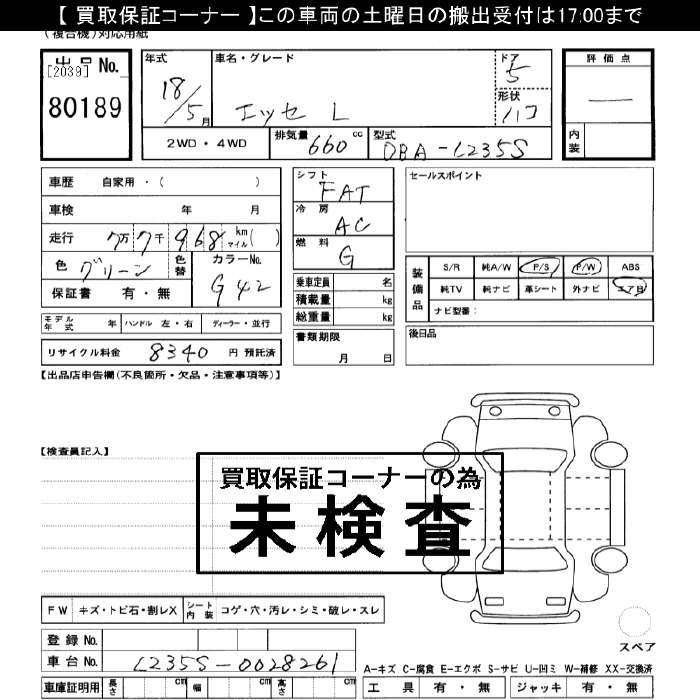 【 買取保証コーナー 】この車両の土曜日の搬出受付は17:00まで
(複合機)対応用紙
出品 No.
[2039]
80189
年式
18/5 月
車名・グレード
エッセ L
ドア
5
形状
ハコ
評価点
—
内装
2WD・4WD
排気量 660 cc
型式 DBA-L235S
車歴 自家用・( )
車検 年 月
走行 7万7千968 km マイル( )
色 グリーン
色替
カラーNo.
G42
保証書 有・無
シフト
FAT
冷房
AC
燃料
G
乗車定員 名
積載量 kg
総重量 kg
書類期限
月 日
セールスポイント
装備品
S/R 純A/W P/S P/W ABS
純TV 純ナビ 革シート 外ナビ エアB
ナビ型番：
後日品
モデル年式 年 ハンドル 左・右 ディーラー・並行
リサイクル料金 8340 円 預託済
【出品店申告欄(不良箇所・欠品・注意事項等)】
【検査員記入】
買取保証コーナーの為
未検査
FW キズ・トビ石・割レX シート内装 コゲ・穴・汚レ・シミ・破レ・スレ
スペア
登録 No.
車台 No. L235S-0028261
車庫証明用 長さ cm 幅 cm 高さ cm
A-キズ C-腐食 E-エクボ S-サビ U-凹ミ W-補修 XX-交換済
工具 有・無 ジャッキ 有・無